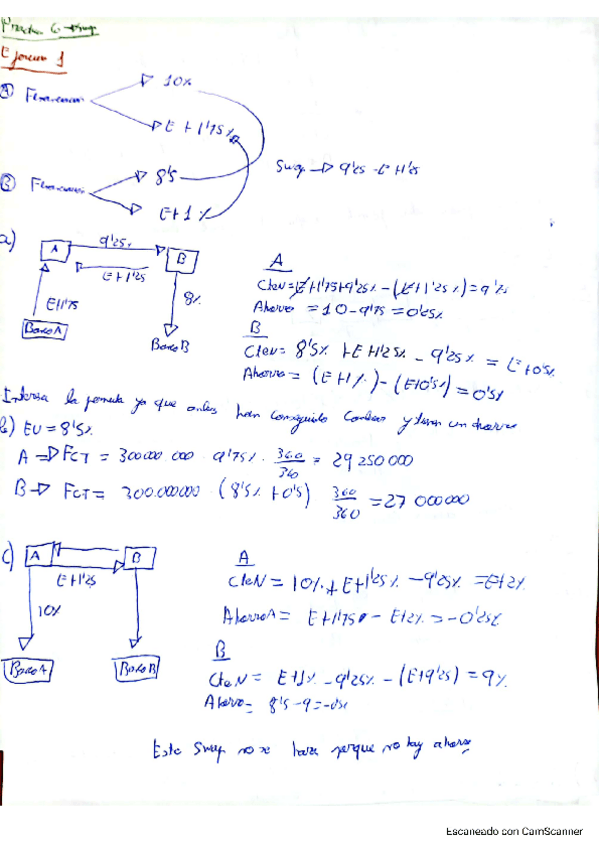 Practica 6 Swap
Ejercicio 1
A Financiacion
10%
E + 1'75%
B Financiacion
8'5
E+1%
Swap → 9'25 - E+1'25
a)
A
9'25%
B
E+1'25
E+1'75
8%
Banco A
Banco B
A
CteN = E+1'75+9'25% - (E+1'25%) = 9'75
Ahorro = 10 - 9'75 = 0'25%
B
CteN = 8'5% + E+1'25% - 9'25% = E+0'5%
Ahorro = (E+1%) - (E+0'5%) = 0'5%
Interesa la permuta ya que ambos han conseguido y tienen un ahorro
b) EU = 8'5%
A → FCT = 300000 000 · 9'75% · 360/360 = 29 250 000
B → FCT = 300.000000 · (8'5% + 0'5) 360/360 = 27 000000
c)
A
B
E+1'25
10%
Banco A
Banco B
A
CteN = 10% + E+1'25% - 9'25% = E+2%
Ahorro A = E+1'75 - E+2% = -0'25%
B
CteN = E+1% - 9'25% - (E+9'25) = 9%
Ahorro = 8'5 - 9 =
Este Swap no se hara porque no hay ahorro
Escaneado con CamScanner